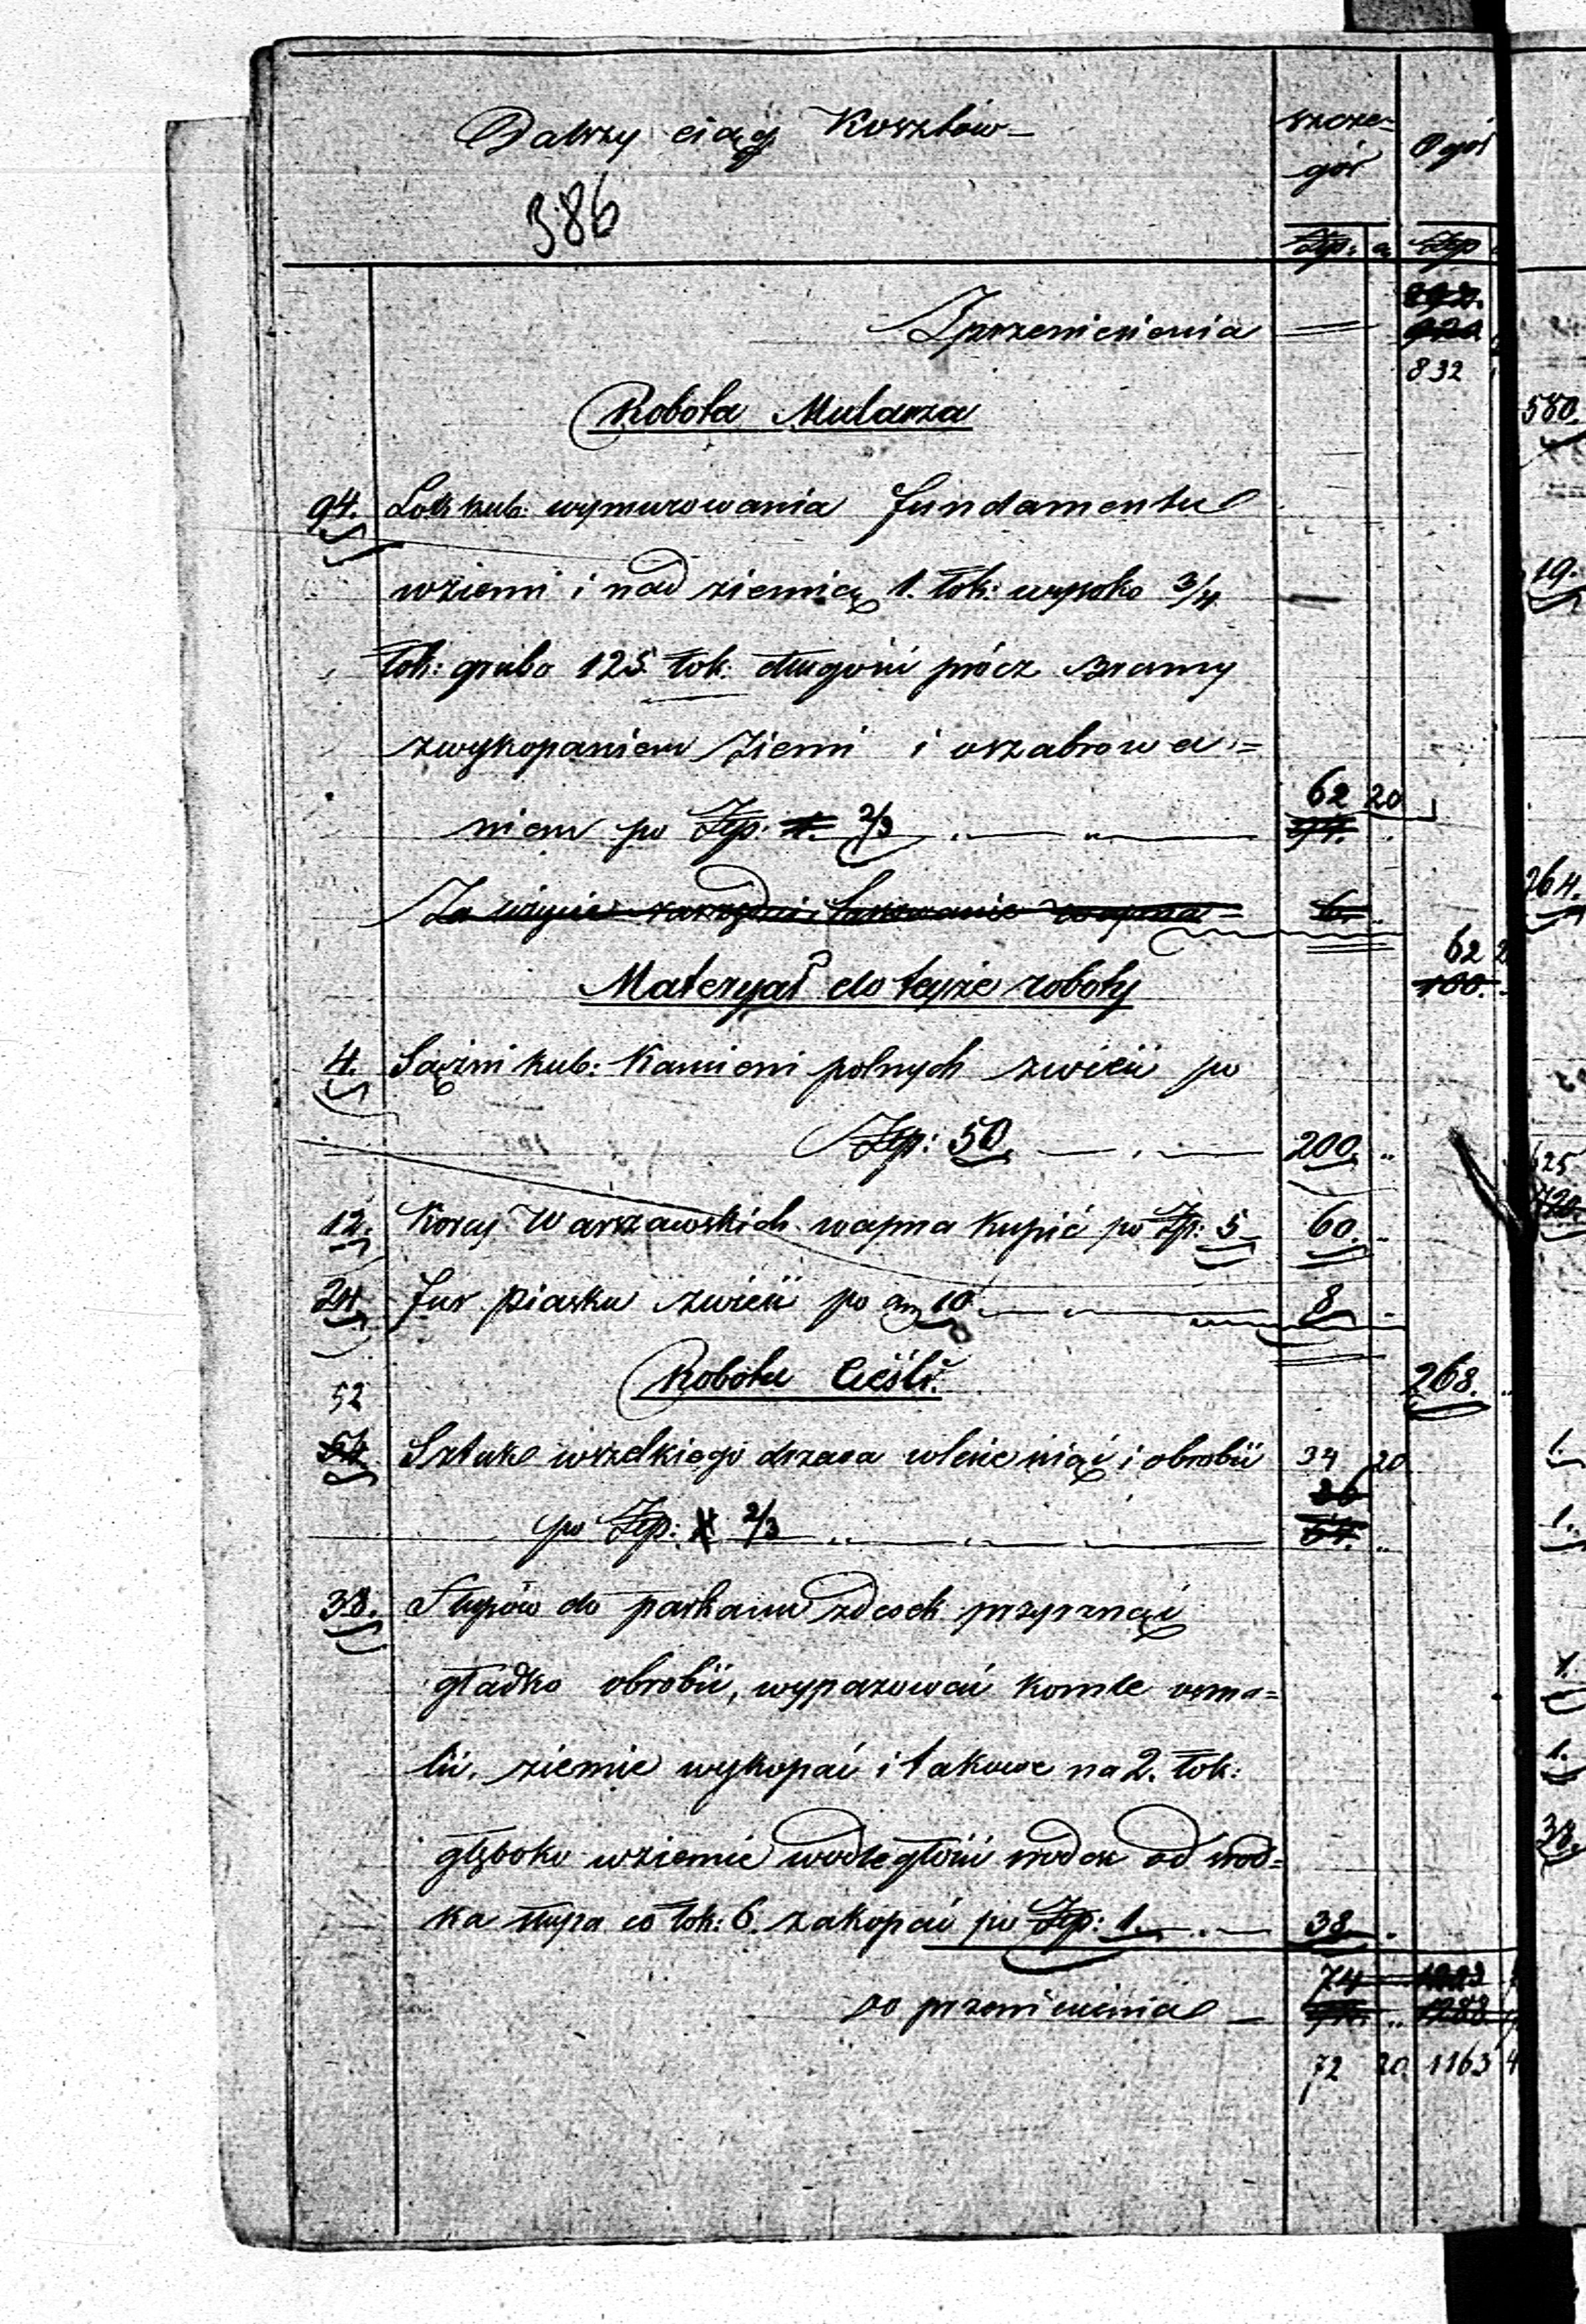 Dalszy ciąg Kosztów
szcze-
gół
Ogół
386
Złp: g Złp
Zprzeniesienia
832
Robota Mularza
94. Łok kub: wymurowania fundamentu
wziemi i nad ziemią 1. łok: wysoko 3/4
łok: grubo 125. łok: długości prócz Bramy
zwykopaniem Ziemi i oszabrowa=
niem po Złp: 1. 2/3 62 20
94.
Za użycie narzędzi i lasowanie wapna 6.
62
Materyał do tejże roboty 100.
4. Sążni kub: Kamieni polnych zwieść po
Złp: 50 200
12. Korcy Warszawskich wapna kupić po Złp: 5 60
24. Fur piasku zwieść po g 10 8
Robota Cieśli. 268.
52
54. Sztuk wszelkiego drzewa wlesie ściąć i obrobić 34 20
26
po Złp: 1 2/3 54.
38. Słupów do parkanu zdesek przyrznąć
gładko obrobić, wypazować końce osma=
lić, ziemie wykopać i takowe na 2. łok:
głęboko wziemie wodległości srodek od srod=
ka słupa co łok: 6. zakopać po Złp: 1. 38
74
do przeniesienia
72 20 1163 4